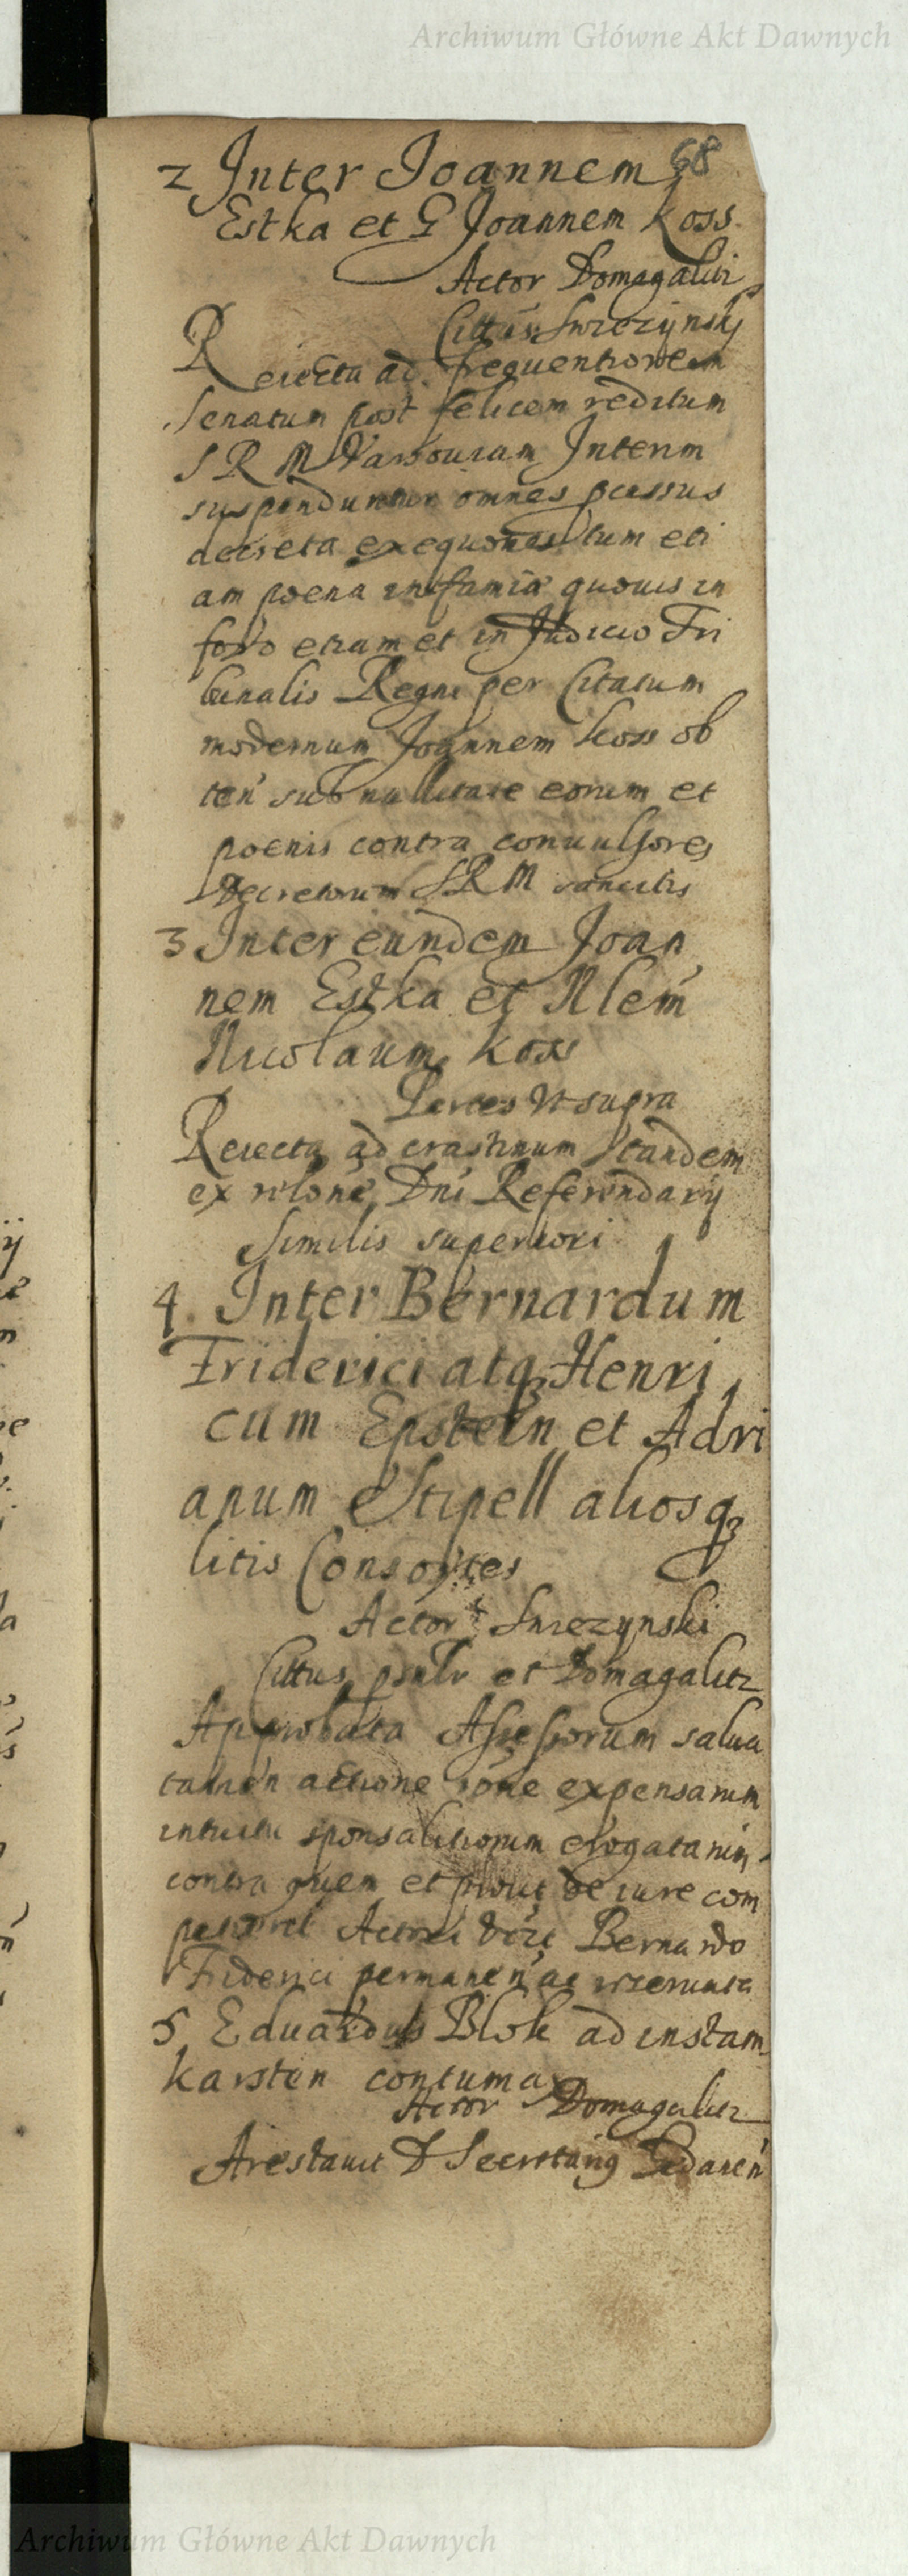 Archiwum Główne Akt Dawnych
68
2 Inter Joannem
Estka et G Joannem Koss
Actor Domagalicz
Cittus Swiezynsky
Reiecta ad frequentiorem
Senatum post felicem reditum
S R M Varsouiam Interim
suspenduntur omnes pcessus
decreta exequones tum eti
am poena infamiæ quouis in
foro etiam et in Judicio Tri
bunalis Regni per Citatum
modernum Joannem Koss ob
ten sub nullitate eorum et
poenis contra conuulsores
Decretorum S R M sancitis
3 Inter eundem Joan
nem Estka et Nlem
Nicolaum Koss
Partes Vt supra
Reiecta ad crastinum tandem
ex relone Dni Referendarij
Similis superiori
4. Inter Bernardum
Friderici atq Henri
cum Epstein et Adri
anum Stipell aliosq
litis Consortes
Actor Swiezynski
Cittus et Domagalicz
Approbata Assessorum salua
tamen actione rone expensarum
intuitu sponsalitiorum erogatarum
contra quem et prout de iure com
Actori Bernardo
Friderici permanen ac
5 Eduardus Blok ad instam
Karsten contumax
Actor Domagalicz
Arestauit D Secretarig Gedanen
Archiwum Główne Akt Dawnych